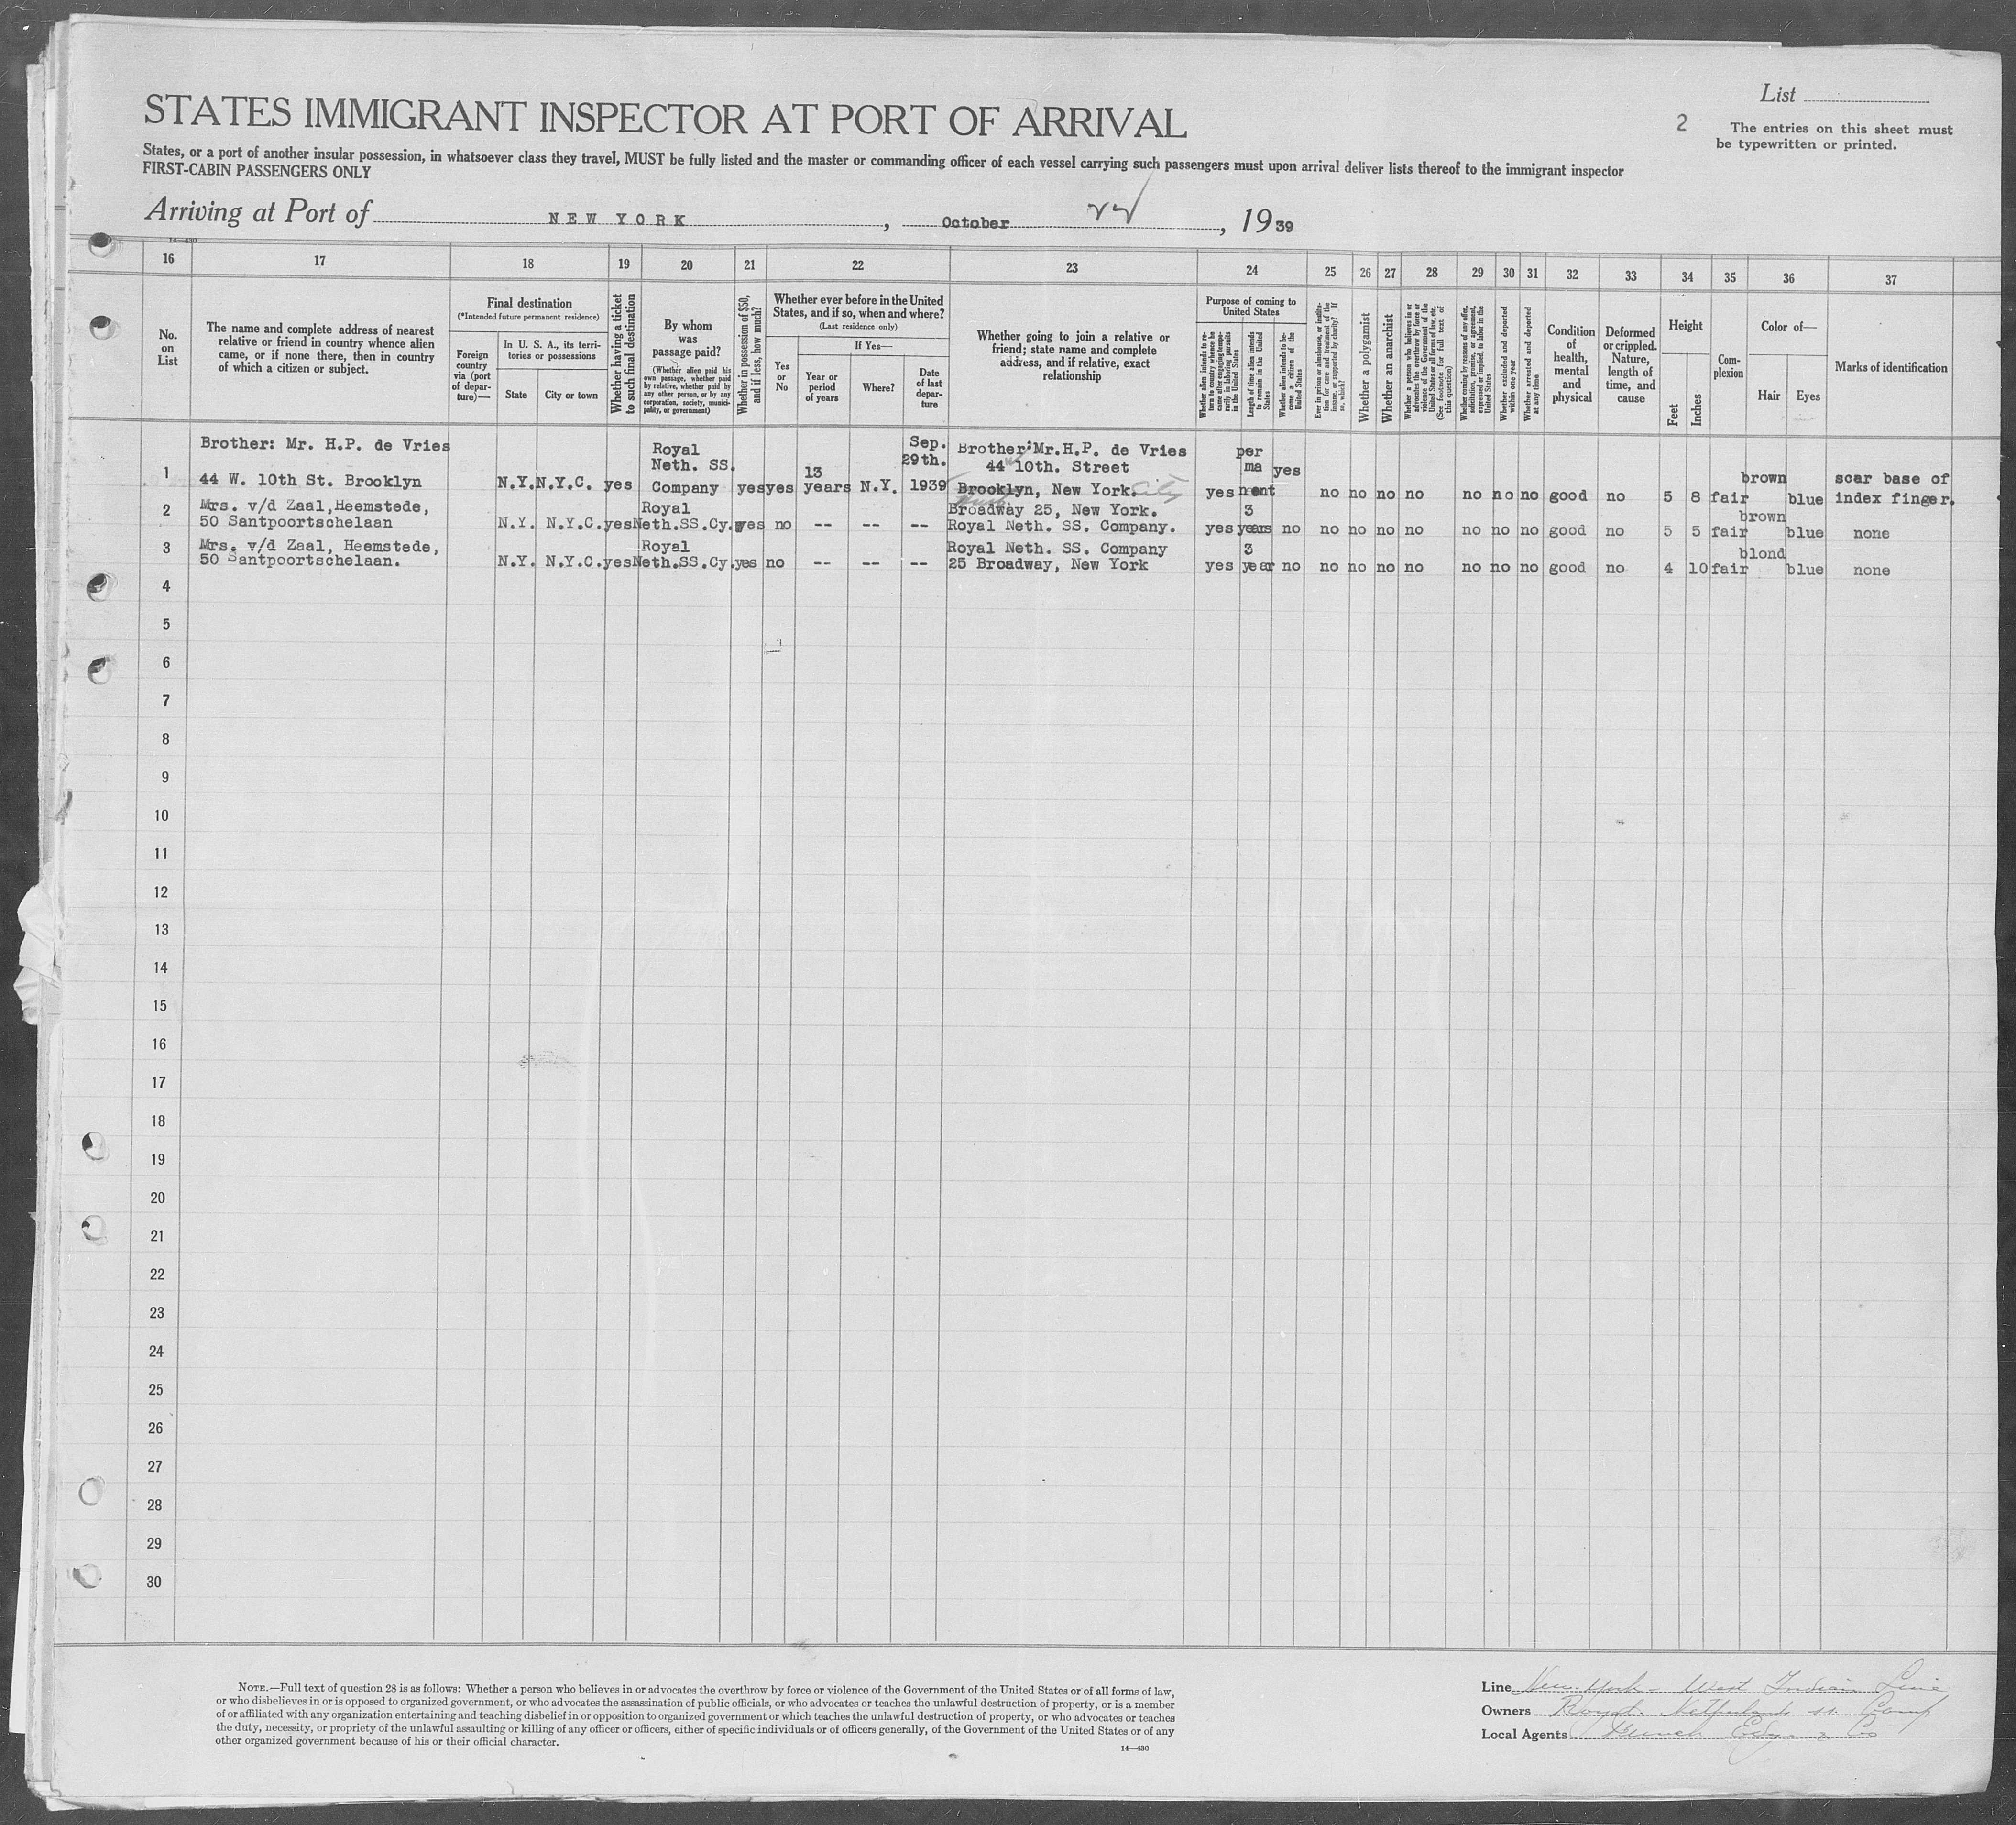 List
STATES IMMIGRANT INSPECTOR AT PORT OF ARRIVAL
2
The entries on this sheet must
be typewritten or printed.
States, or a port of another insular possession, in whatsoever class they travel, MUST be fully listed and the master or commanding officer of each vessel carrying such passengers must upon arrival deliver lists thereof to the immigrant inspector
FIRST-CABIN PASSENGERS ONLY
Arriving at Port of NEW YORK, October 22, 1939
14—430
16 17 18 19 20 21 22 23 24 25 26 27 28 29 30 31 32 33 34 35 36 37
No.
on
List
The name and complete address of nearest
relative or friend in country whence alien
came, or if none there, then in country
of which a citizen or subject.
Final destination
(*Intended future permanent residence)
Foreign
country
via (port
of depar-
ture)—
In U. S. A., its terri-
tories or possessions
State
City or town
Whether having a ticket
to such final destination
By whom
was
passage paid?
(Whether alien paid his
own passage, whether paid
by relative, whether paid by
any other person, or by any
corporation, society, munici-
pality, or government)
Whether in possession of $50,
and if less, how much?
Whether ever before in the United
States, and if so, when and where?
(Last residence only)
Yes
or
No
If Yes—
Year or
period
of years
Where?
Date
of last
depar-
ture
Whether going to join a relative or
friend; state name and complete
address, and if relative, exact
relationship
Purpose of coming to
United States
Whether alien intends to re-
turn to country whence he
came after engaging tempo-
rarily in laboring pursuits
in the United States
Length of time alien intends
to remain in the United
States
Whether alien intends to be-
come a citizen of the
United States
Ever in prison or almshouse, or institu-
tion for care and treatment of the
insane, or supported by charity? If
so, which?
Whether a polygamist
Whether an anarchist
Whether a person who believes in or
advocates the overthrow by force or
violence of the Government of the
United States or all forms of law, etc.
(See footnote for full text of
this question)
Whether coming by reasons of any offer,
solicitation, promise, or agreement,
expressed or implied, to labor in the
United States
Whether excluded and deported
within one year
Whether arrested and deported
at any time
Condition
of
health,
mental
and
physical
Deformed
or crippled.
Nature,
length of
time, and
cause
Height
Feet
Inches
Com-
plexion
Color of—
Hair
Eyes
Marks of identification
Brother: Mr. H.P. de Vries
Royal
Neth. SS.
Sep.
29th.
Brother:Mr.H.P. de Vries
44 10th. Street
per
ma yes
1 44 W. 10th St. Brooklyn N.Y. N.Y.C. yes Company yes yes 13 years N.Y. 1939 Brooklyn, New York. City yes nent no no no no no no no good no 5 8 fair brown blue scar base of
index finger.
2 Mrs. v/d Zaal,Heemstede, Royal Broadway 25, New York. 3 brown
50 Santpoortschelaan N.Y. N.Y.C. yes Neth.SS.Cy. yes no -- -- -- Royal Neth. SS. Company. yes years no no no no no no no no good no 5 5 fair blue none
3 Mrs. v/d Zaal, Heemstede, Royal Royal Neth. SS. Company 3 blond
50 Santpoortschelaan. N.Y. N.Y.C. yes Neth.SS.Cy. yes no -- -- -- 25 Broadway, New York yes year no no no no no no no no good no 4 10 fair blue none
4
5
6
7
8
9
10
11
12
13
14
15
16
17
18
19
20
21
22
23
24
25
26
27
28
29
30
NOTE.—Full text of question 28 is as follows: Whether a person who believes in or advocates the overthrow by force or violence of the Government of the United States or of all forms of law,
or who disbelieves in or is opposed to organized government, or who advocates the assassination of public officials, or who advocates or teaches the unlawful destruction of property, or is a member
of or affiliated with any organization entertaining and teaching disbelief in or opposition to organized government or which teaches the unlawful destruction of property, or who advocates or teaches
the duty, necessity, or propriety of the unlawful assaulting or killing of any officer or officers, either of specific individuals or of officers generally, of the Government of the United States or of any
other organized government because of his or their official character.
14—430
Line New York West Indian Line
Owners Royal Netherlands SS Comp
Local Agents Funch Edye & Co